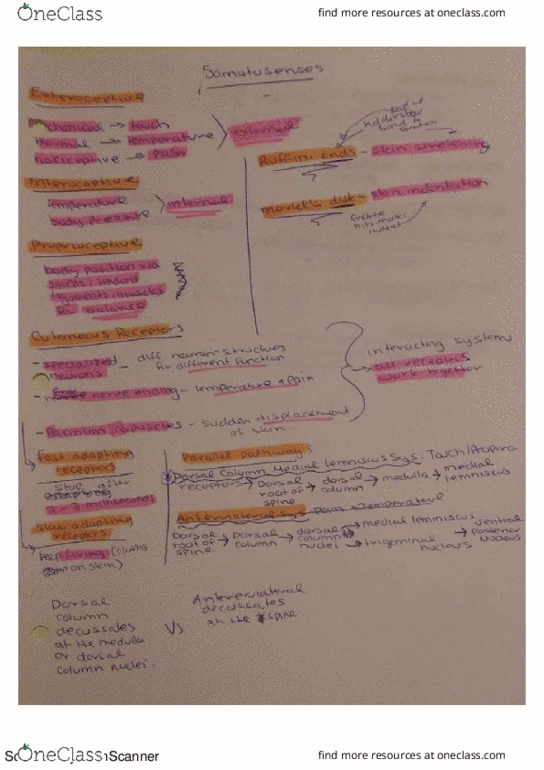 OneClass
find more resources at oneclass.com
Somatosenses
Exteroceptive
mechanical → touch
thermal → temperature
nociceptive → pain
external
Ruffini ends - skin stretching
Interoceptive
temperature
body pressure
internal
Merkel's disk - skin indentation
Proprioceptive
body position via
joints, tendent
ligaments, muscles
balance
Cutaneous Receptors
- specialized neurons - diff neuron structures
for different function
- free nerve ending - temperature + pain
- Pacinian corpuscles - sudden displacement
of skin
interacting systems
all receptors
work together
fast adapting
receptors
stop after
milliseconds
slow adapting
receptors
keep firing
Parallel pathways
Dorsal Column Medial lemniscus Sys. Touch/Proprio.
receptors → Dorsal root of spine → dorsal column → medulla → medial lemniscus
Anterolateral Sys Pain + Temperature
Dorsal root of spine → Dorsal column → dorsal column nuclei → medial lemniscus
→ trigeminal nucleus
ventral posterior nucleus
Dorsal
column
decussates
at the medulla
or dorsal
column nuclei.
Vs
Anterolateral
decussates
at the spine
OneClass
Scanner
find more resources at oneclass.com